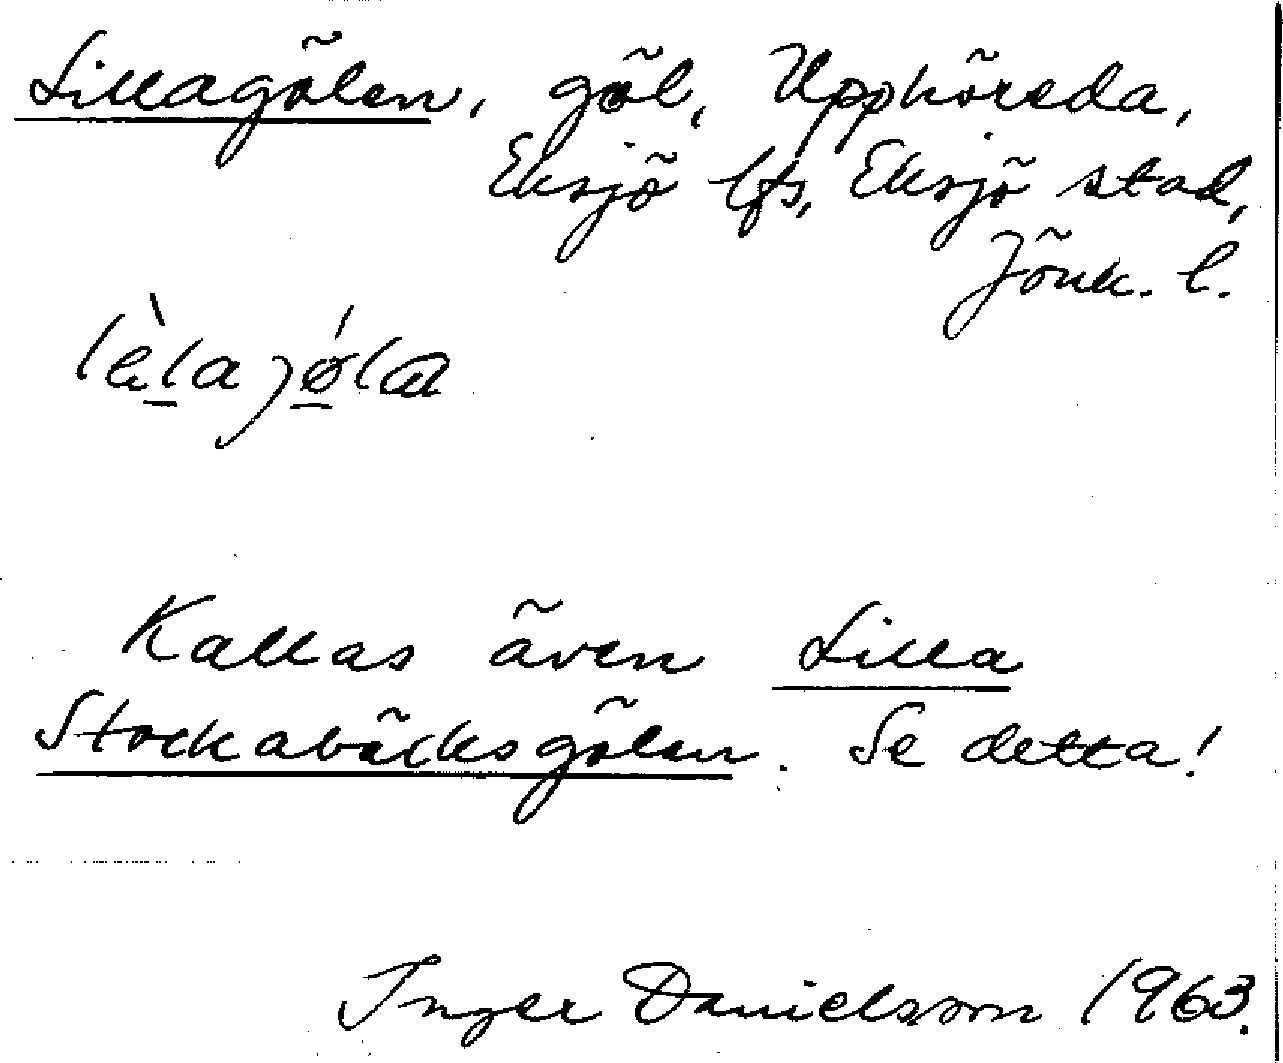 Lillagölen, göl, Upphöreda,
Eksjö lfs, Eksjö stad,
Jönk. l.
lèla jǿla
Kallas även Lilla
Stockabäcksgölen. Se detta!
Inger Danielsson 1963.